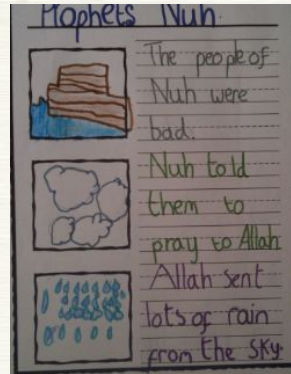 Prophets Nuh.
The people of
Nuh were
bad.
Nuh told
them to
pray to Allah
Allah sent
lots of rain
from the sky.